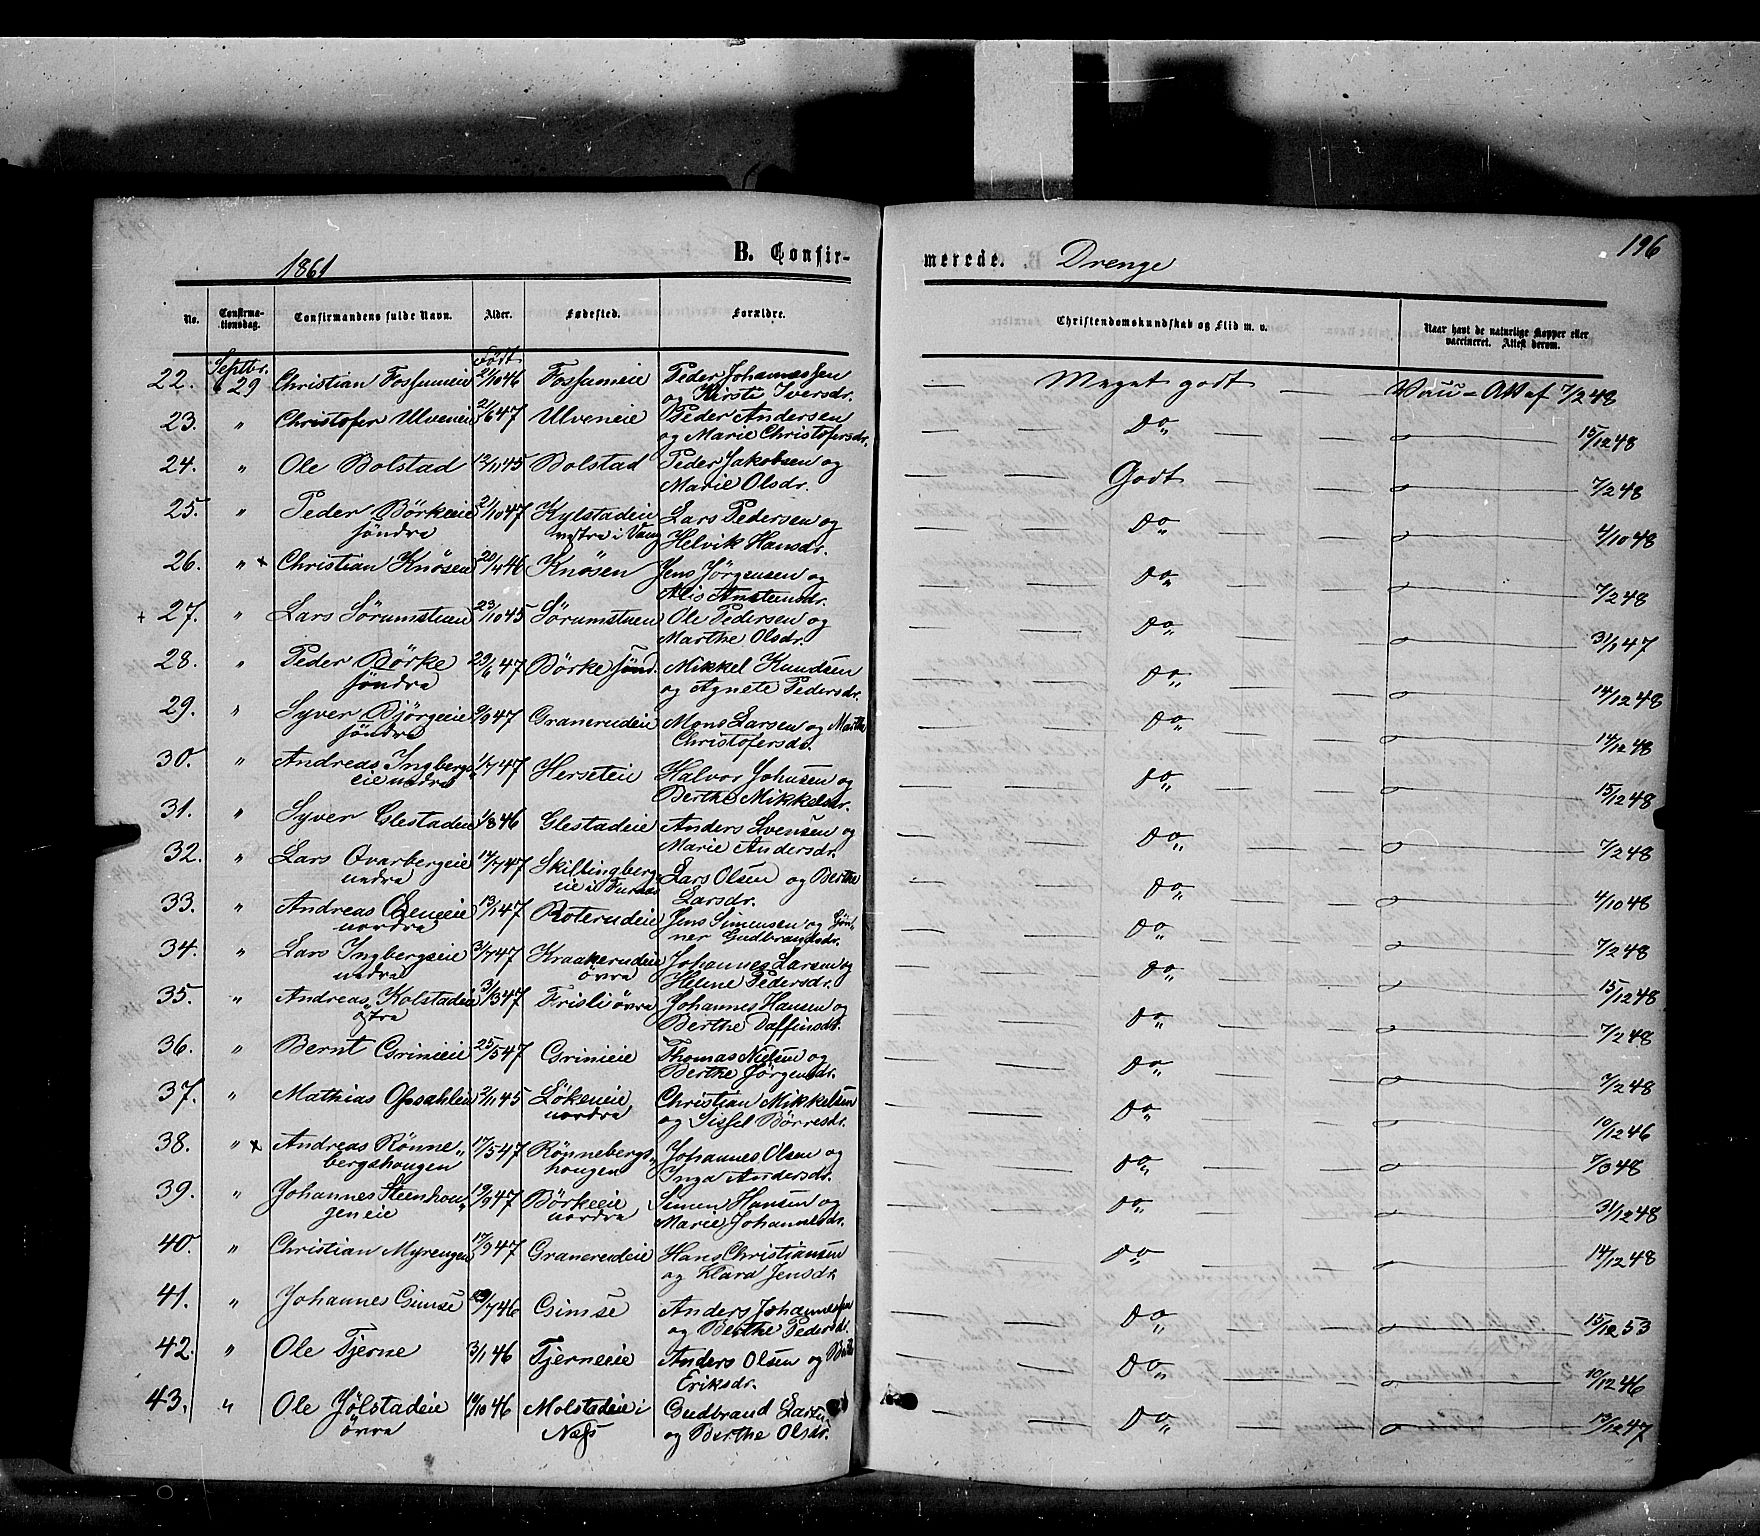 196
1861 B. Confir- merede. Drenge
No. Confirma-tionsdag. Confirmandens fulde Navn. Alder. Fødested. Forældre. Christendomskundskab og Flid m. v. Naar havt de naturlige Kopper eller vaccineret. Attest derom.
Septbr. Født
22. 29 Christian Fossumeie 2/10 46 Fossumeie Peder Johannessen Meget godt 7/2 48
og Kirsti Iversdr.
23. " Christofer Ulveneie 2/6 47 Ulveneie Peder Andersen Do 15/12 48
og Marie Christofersdr.
24. " Ole Bolstad 12/11 45 Bolstad Peder Jakobsen og Godt 7/2 48
Marie Olsdr.
25. " Peder Börkeeie 2/10 47 Kylstadeie Lars Pedersen og Do 4/10 48
söndre vestre i Vang Helvik Hansdr.
26. " x Christian Knösen 20/4 46 Knösen Jens Jörgensen og Do 7/2 48
Alis Amstensdr.
+ 27. " Lars Sörumstuen 23/10 45 Sörumstuen Ole Pedersen og Do 31/1 47
Marthe Olsdr.
28. " Peder Börke 29/6 47 Börke sönd. Mikkel Knudsen Do 14/12 48
söndre og Agnete Pedersdr.
29. " Syver Bjørgeeie 9/9 47 Granerudeie Mons Larsen og Marthe Do 14/12 48
söndre Christofersdr.
30. " Andreas Ingbergs 1/7 47 Herseteie Halvor Johnsen og Do 15/12 48
eie nedre Berthe Mikkelsdr.
31. " Syver Glestadeie 1/8 46 Glestadeie Anders Svensen og Do 7/2 48
Marie Andersdr.
32. " Lars Qvarbergeie 14/7 47 Skillingberg- Lars Olsen og Berthe Do 4/10 48
nedre eie i Furnæs Larsdr.
33. " Andreas Leneeie 13/1 47 Roterudeie Jens Simensen og Gön- Do 7/2 48
nordre ner Gudbrandsdr.
34. " Lars Ingbergseie 3/7 47 Kraakerudeie Johannes Larsen og Do 15/12 48
nedre övre Helene Pedersdr.
35. " Andreas Kolstadeie 3/3 47 Frisli övre Johannes Hansen og Do 7/2 48
östre Berthe Dalfinsdr.
36. " Bernt Grimeie 25/5 47 Grinieie Thomas Nielsen og Do 7/2 48
Berthe Jörgensdr.
37. " Mathias Opsahlen 2/11 45 Lökeneie Christian Mikkelsen Do 10/12 46
nordre og Sissel Börresdr.
38. " x Andreas Rönne- 17/5 47 Rönnebergs- Johannes Olsen og Do 7/3 48
bergshougen hougen Inga Andersdr.
39. " Johannes Steenhou- 19/9 47 Börkeeie Simen Hansen og Do 31/12 48
geneie nordre Marie Johannesdr.
40. " Christian Myrengen 17/9 47 Granerudeie Hans Christiansen Do 14/12 48
og Klara Jensdr.
41. " Johannes Gimse /7 46 Gimse Anders Johannessen Do 15/12 53
og Berthe Pedersdr.
42. " Ole Tjerne 3/1 46 Tjerneeie Anders Olsen og Berthe Do 10/12 46
Eriksdr.
43. " Ole Jölstadeie 10/10 46 Molstadeie i Gudbrand Larsen Do 13/12 47
övre Næss og Berthe Olsdr.